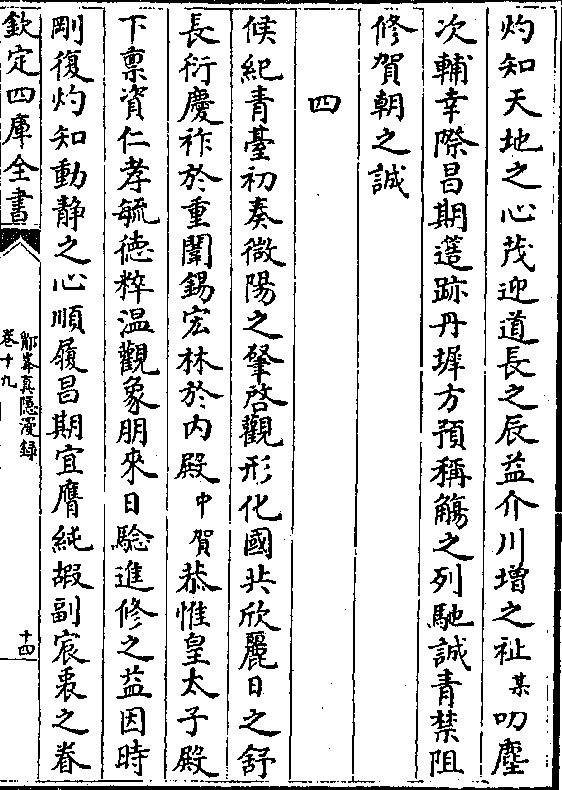 灼知天地之心茂迎道長之辰益介川增之祉某叨塵
次輔幸際昌期簉跡丹墀方預稱觴之列馳誠青禁阻
修賀朝之誠
四
候紀青臺初奏微陽之肇啓觀形化國共欣麗日之舒
長衍慶祚於重闈錫宏林於内殿中賀恭惟皇太子殿
下禀資仁孝毓德粹温觀象朋來日騐進修之益因時
剛復灼知動静之心順履昌期宜膺純嘏副宸衷之眷
欽定四庫全書
鄮峯真隠漫録
卷十九
十四